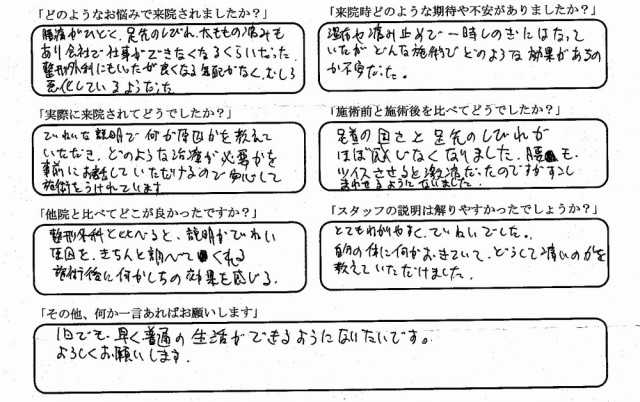 「どのようなお悩みで来院されましたか？」
腰痛がひどく、足先のしびれ、太ももの痛みも
あり会社で仕事ができなくなるくらいだった。
整形外科にもいったが良くなる気配がなく、むしろ
悪化しているようだった
「来院時どのような期待や不安がありましたか？」
湿布や痛み止めで一時しのぎにはなって
いたが どんな施術で どのような効果があるの
か不安だった。
「実際に来院されてどうでしたか？」
ていねいな説明で何が原因かを教えて
いただき、どのような治療が必要かを
事前にお話していただけるので安心して
施術をうけれています
「施術前と施術後を比べてどうでしたか？」
足首の固さと足先のしびれが
ほぼ感じなくなりました。腰も、
ツイストさせると激痛だったのですがすこし
まわせるようになりました。
「他院と比べてどこが良かったですか？」
整形外科と比べると、説明がていねい
原因を、きちんと調べてくれる
施術後に何かしらの効果を感じる。
「スタッフの説明は解りやすかったでしょうか？」
とてもわかりやすく、ていねいでした。
自分の体に何がおきていて、どうして痛いのかを
教えていただけました。
「その他、何か一言あればお願いします」
1日でも、早く普通の生活ができるようになりたいです。
よろしくお願いします。